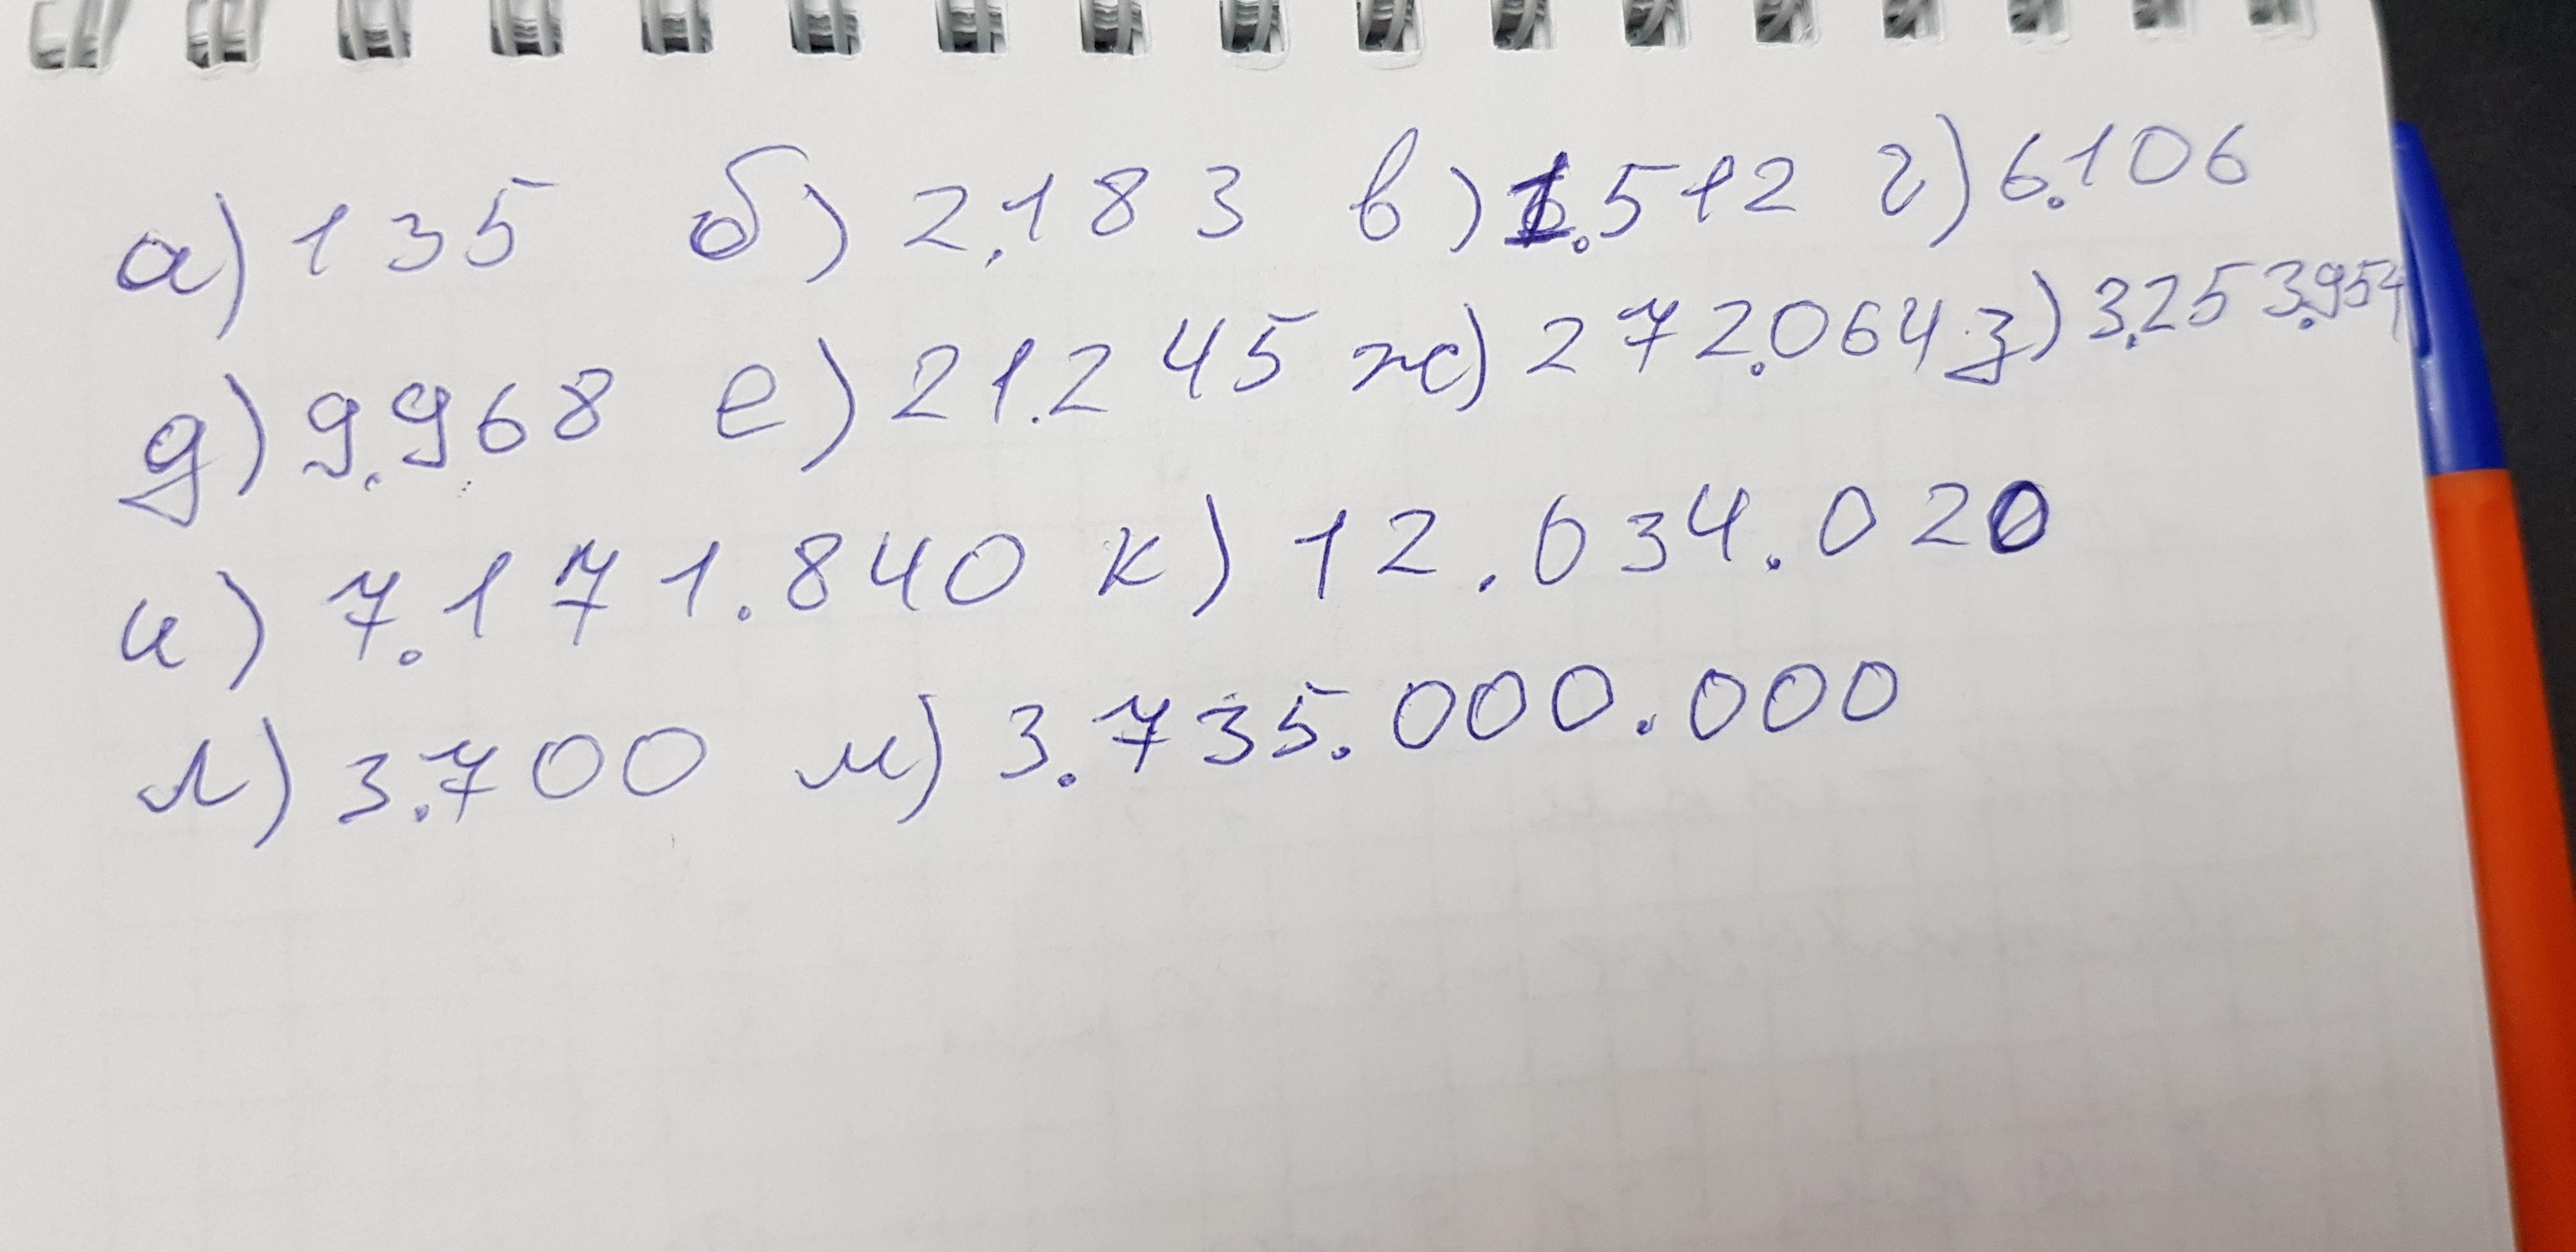 а) 135 б) 2.183 в) 1.512 г) 6.106
д) 9.968 е) 21.245 ж) 272.064 з) 3.253.954
и) 7.171.840 к) 12.034.020
л) 3.700 м) 3.735.000.000